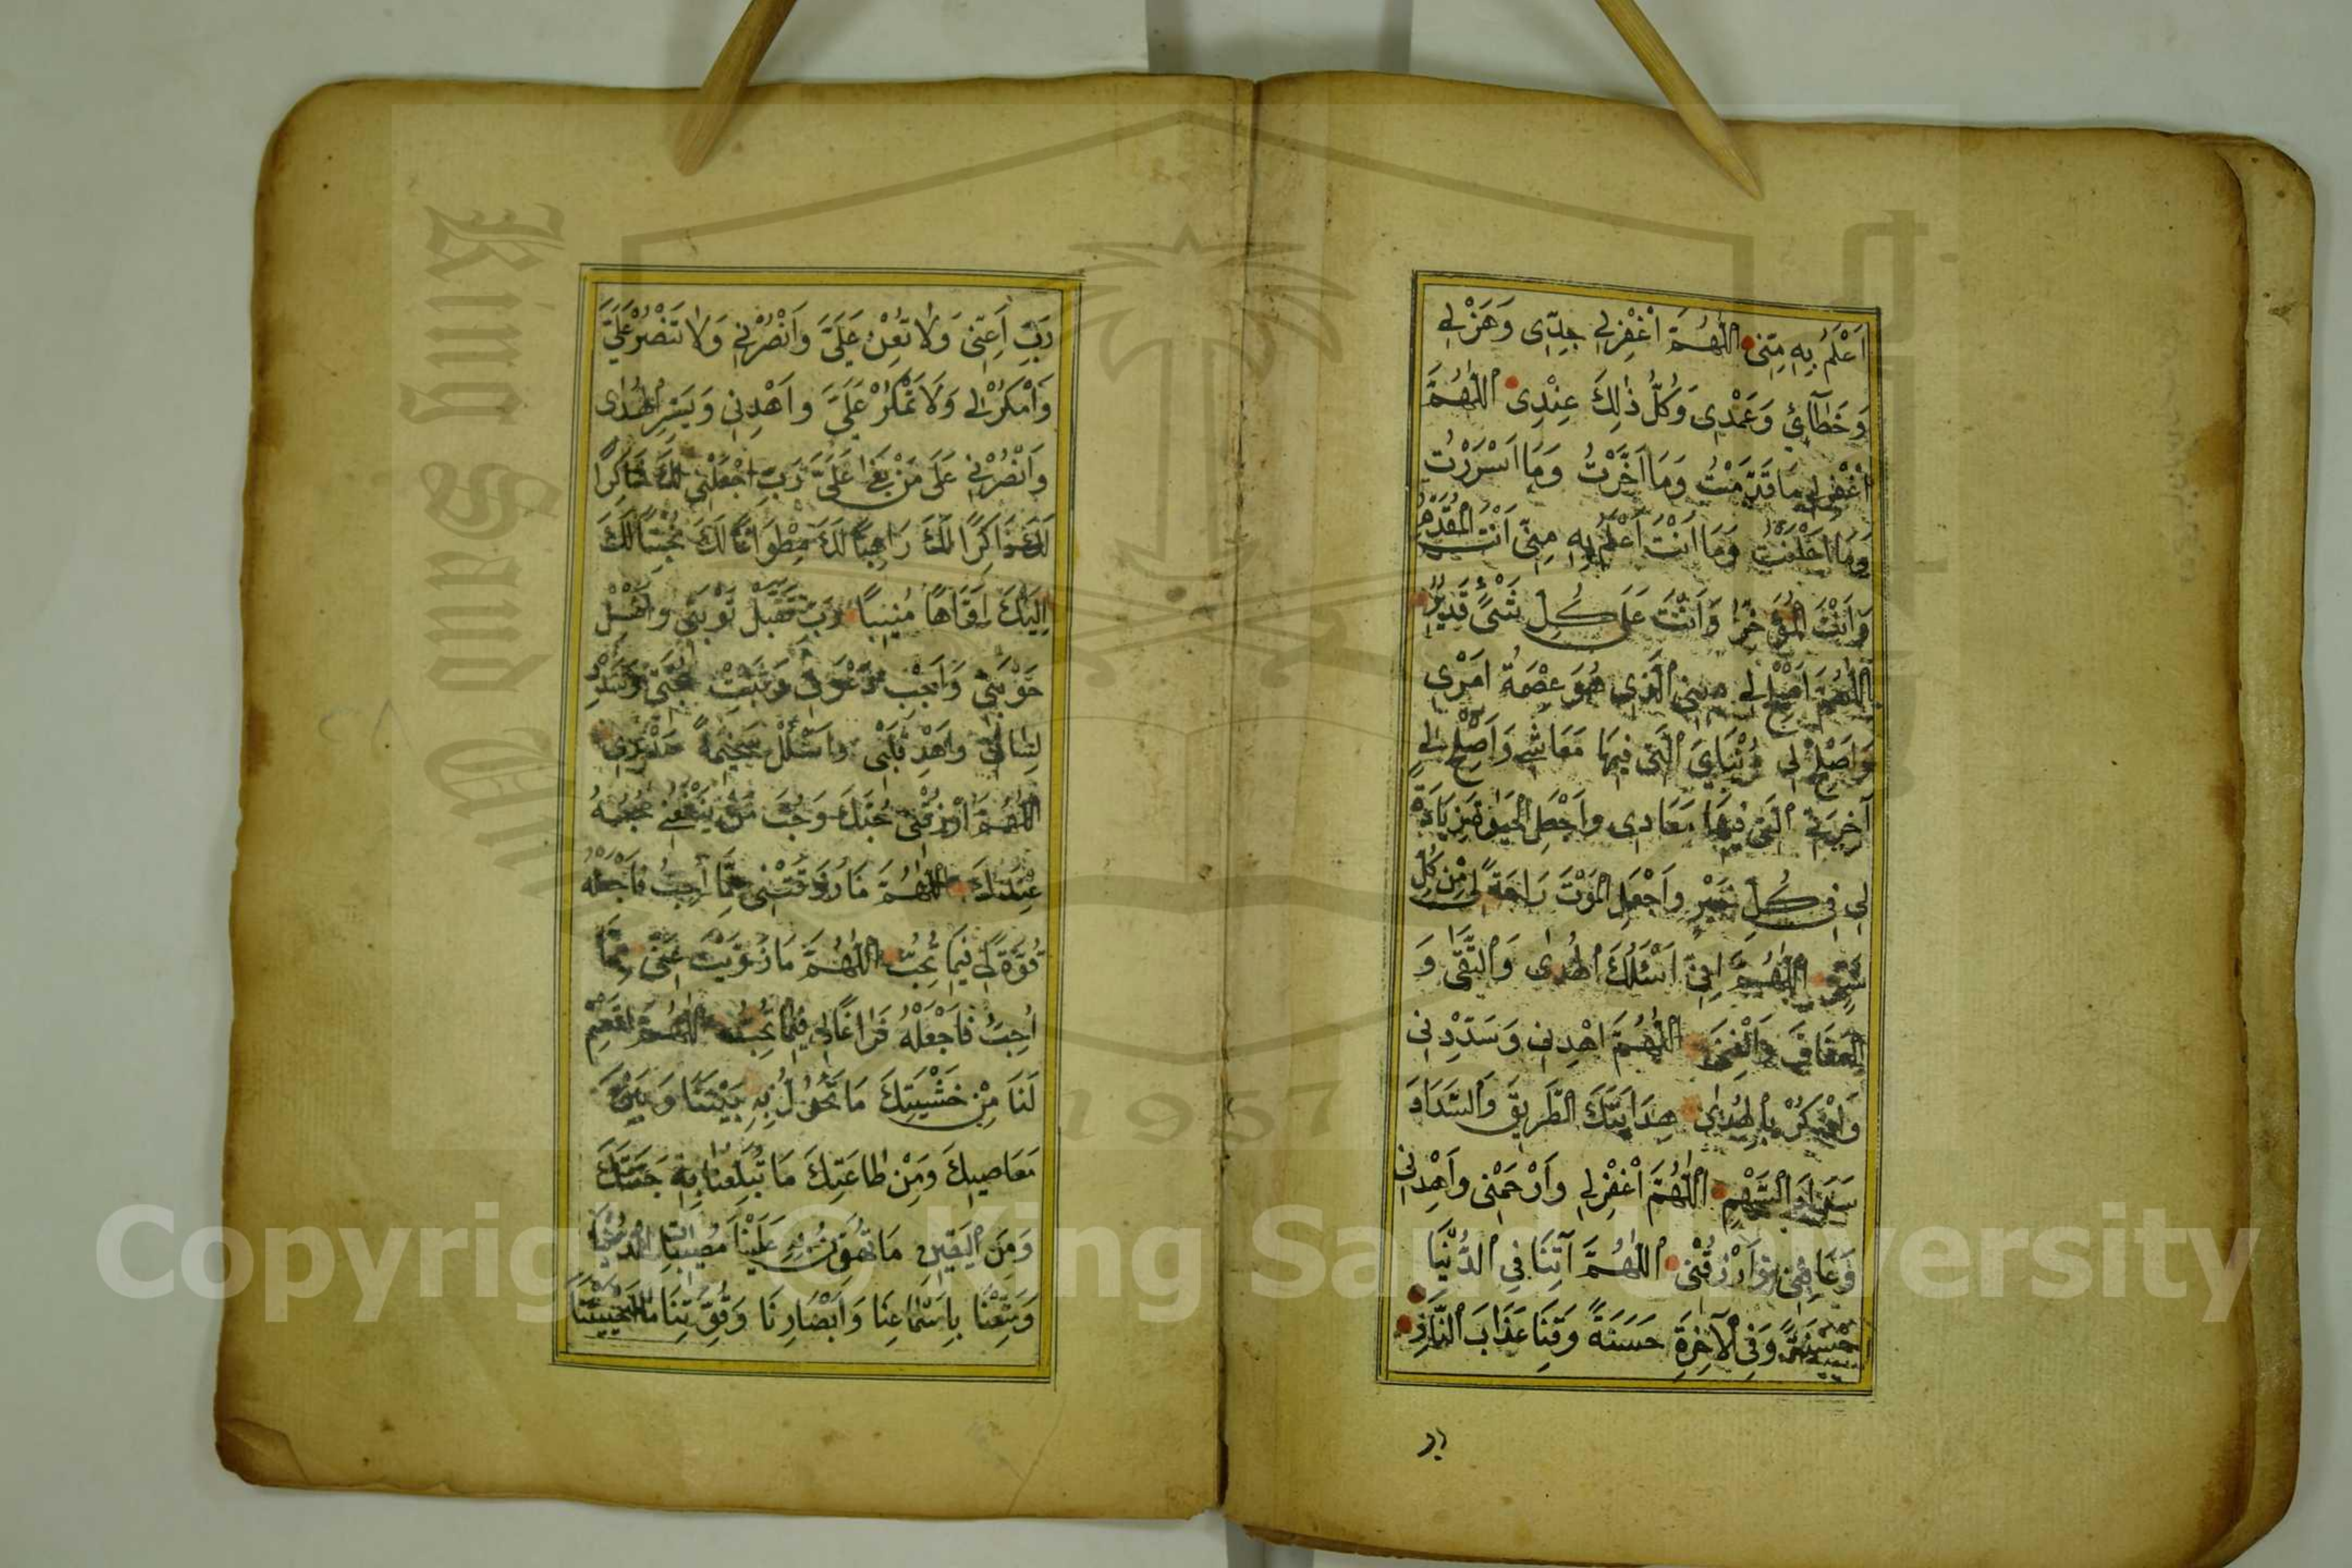 اَعْلَمُ بِهِ مِنِّى اَللّٰهُمَّ اغْفِرْ لِي جِدِّى وَهَزْلِي
وَخَطَآئِي وَعَمْدِى وَكُلُّ ذٰلِكَ عِنْدِى اَللّٰهُمَّ
اغْفِرْ لِي مَا قَدَّمْتُ وَمَا اَخَّرْتُ وَمَا اَسْرَرْتُ
وَمَا اَعْلَنْتُ وَمَا اَنْتَ اَعْلَمُ بِهِ مِنِّى اَنْتَ الْمُقَدِّمُ
وَاَنْتَ الْمُؤَخِّرُ وَاَنْتَ عَلَى كُلِّ شَىْءٍ قَدِيرٌ
اَللّٰهُمَّ اَصْلِحْ لِي دِينِي الَّذِى هُوَ عِصْمَةُ اَمْرِى
وَاَصْلِحْ لِي دُنْيَايَ الَّتِى فِيهَا مَعَاشِي وَاَصْلِحْ لِي
آخِرَتِي الَّتِى فِيهَا مَعَادِى وَاجْعَلِ الْحَيٰوةَ زِيَادَةً
لِي فِى كُلِّ خَيْرٍ وَاجْعَلِ الْمَوْتَ رَاحَةً لِي مِنْ كُلِّ
شَرٍّ اَللّٰهُمَّ اِنِّى اَسْئَلُكَ الْهُدٰى وَالتُّقٰى وَ
الْعَفَافَ وَالْغِنٰى اَللّٰهُمَّ اهْدِنِى وَسَدِّدْنِى
وَاذْكُرْ بِالْهُدٰى هِدَايَتَكَ الطَّرِيقَ وَالسَّدَادَ
سَدَادَ السَّهْمِ اَللّٰهُمَّ اغْفِرْ لِي وَارْحَمْنِى وَاهْدِنِى
وَعَافِنِى وَارْزُقْنِى اَللّٰهُمَّ آتِنَا فِي الدُّنْيَا
حَسَنَةً وَفِى الْآخِرَةِ حَسَنَةً وَقِنَا عَذَابَ النَّارِ
رب
رَبِّ اَعِنِّى وَلَا تُعِنْ عَلَىَّ وَانْصُرْنِي وَلَا تَنْصُرْ عَلَيَّ
وَامْكُرْ لِي وَلَا تَمْكُرْ عَلَيَّ وَاهْدِنِى وَيَسِّرِ الْهُدٰى
وَانْصُرْنِي عَلَى مَنْ بَغٰى عَلَىَّ رَبِّ اجْعَلْنِي لَكَ شَاكِرًا
لَكَ ذَاكِرًا لَكَ رَاهِبًا لَكَ مِطْوَاعًا لَكَ مُخْبِتًا لَكَ
اِلَيْكَ اَوَّاهًا مُنِيبًا رَبِّ تَقَبَّلْ تَوْبَتِي وَاغْسِلْ
حَوْبَتِي وَاَجِبْ دَعْوَتِي وَثَبِّتْ حُجَّتِي وَسَدِّدْ
لِسَانِي وَاهْدِ قَلْبِى وَاسْلُلْ سَخِيمَةَ صَدْرِى
اَللّٰهُمَّ ارْزُقْنِى حُبَّكَ وَحُبَّ مَنْ يَنْفَعُنِي حُبُّهُ
عِنْدَكَ اَللّٰهُمَّ مَا رَزَقْتَنِى مِمَّا اُحِبُّ فَاجْعَلْهُ
قُوَّةً لِي فِيمَا تُحِبُّ اَللّٰهُمَّ مَا زَوَيْتَ عَنِّى مِمَّا
اُحِبُّ فَاجْعَلْهُ فَرَاغًا لِي فِيمَا تُحِبُّ اَللّٰهُمَّ اقْسِمْ
لَنَا مِنْ خَشْيَتِكَ مَا تَحُولُ بِهِ بَيْنَنَا وَبَيْنَ
مَعَاصِيكَ وَمِنْ طَاعَتِكَ مَا تُبَلِّغُنَا بِهِ جَنَّتَكَ
وَمِنَ الْيَقِينِ مَا تُهَوِّنُ بِهِ عَلَيْنَا مُصِيبَاتِ الدُّنْيَا
وَمَتِّعْنَا بِاَسْمَاعِنَا وَاَبْصَارِنَا وَقُوَّتِنَا مَا اَحْيَيْتَنَا
King Saud University
1957
Copyright © King Saud University